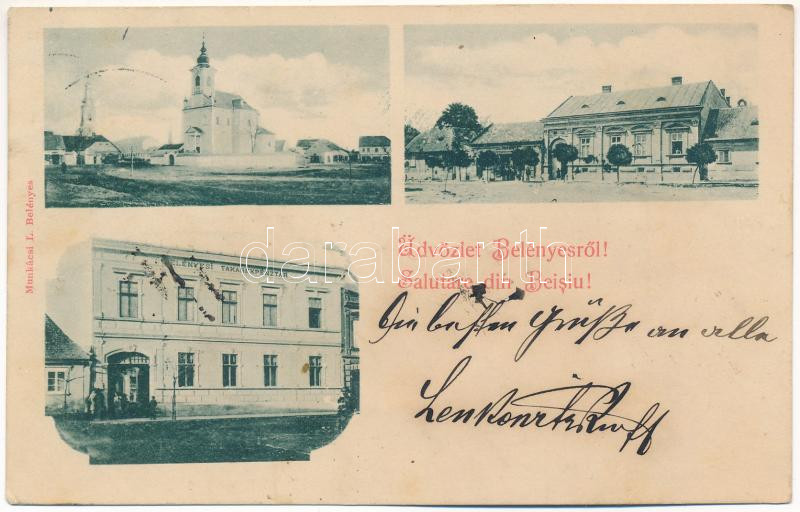 Munkácsi L. Belényes
BELÉNYESI TAKARÉKPÉNZTÁR
Üdvözlet Belényesről!
Salutare din Beișiu!
Die besten Grüße an alle
darabanth.com